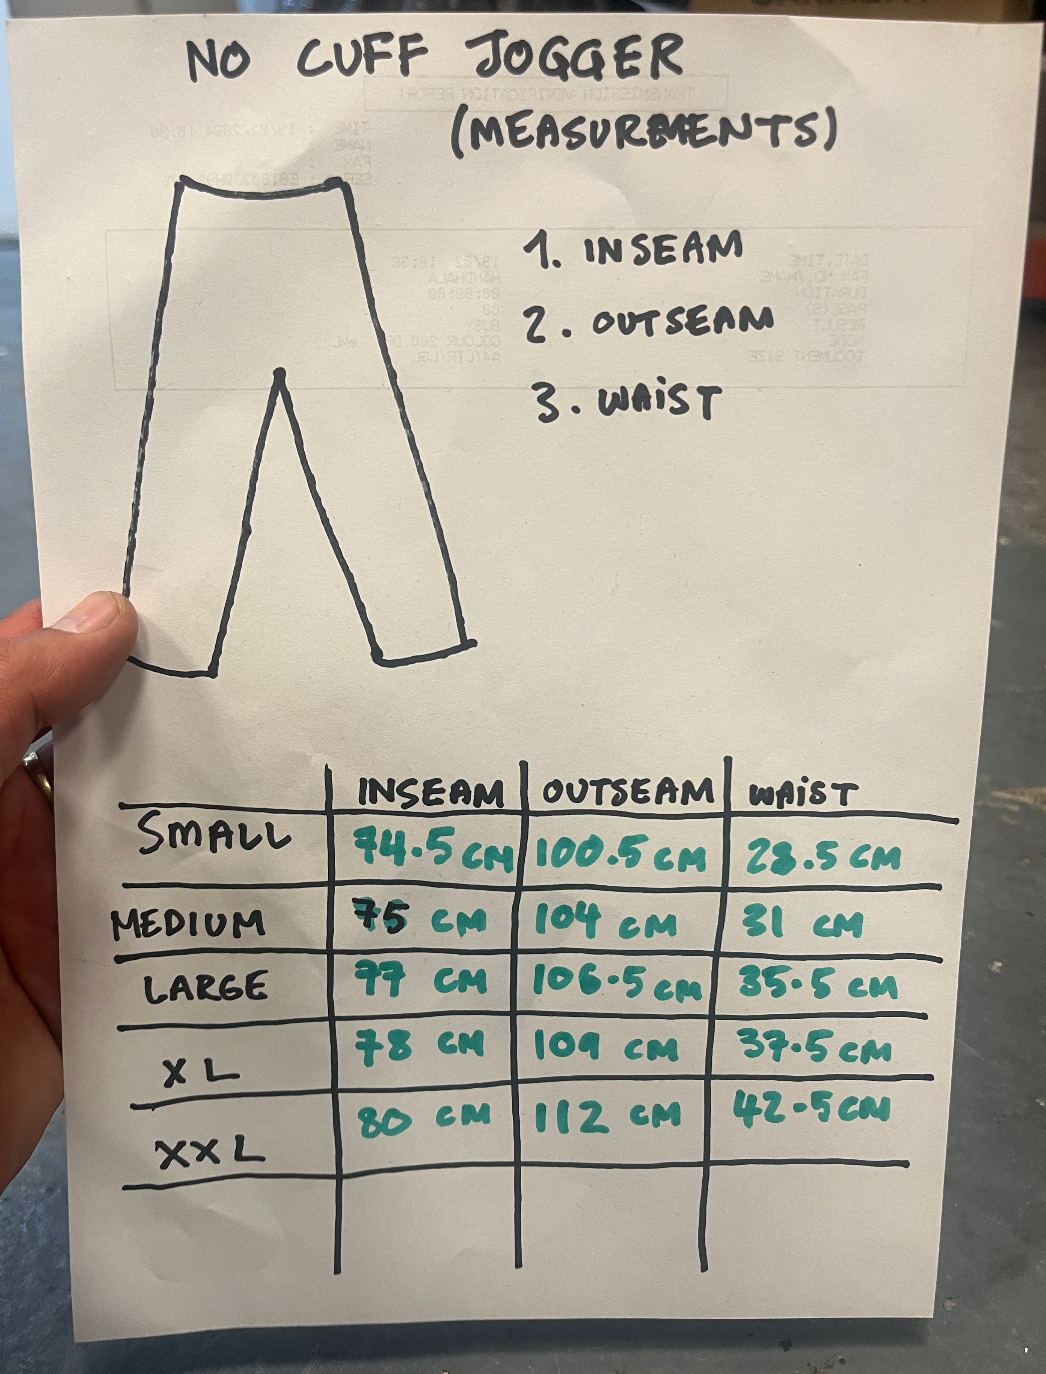 NO CUFF JOGGER
(MEASURMENTS)
1. INSEAM
2. OUTSEAM
3. WAIST
INSEAM OUTSEAM WAIST
SMALL 74.5 CM 100.5 CM 28.5 CM
MEDIUM 75 CM 104 CM 31 CM
LARGE 77 CM 106.5 CM 35.5 CM
XL 78 CM 109 CM 37.5 CM
XXL 80 CM 112 CM 42.5 CM